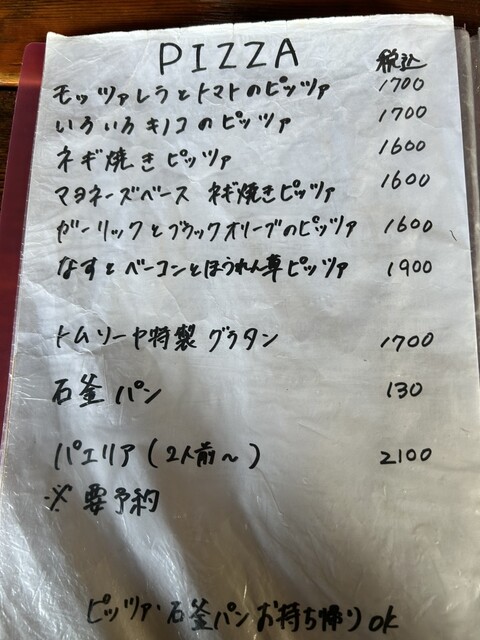 PIZZA 税込
モッツァレラとトマトのピッツァ 1700
いろいろキノコのピッツァ 1700
ネギ焼きピッツァ 1600
マヨネーズベース ネギ焼きピッツァ 1600
ガーリックとブラックオリーブのピッツァ 1600
なすとベーコンとほうれん草ピッツァ 1900
トムソーヤ特製 グラタン 1700
石釜 パン 130
パエリア (2人前〜) 2100
※ 要予約
ピッツァ・石釜パンお持ち帰りok